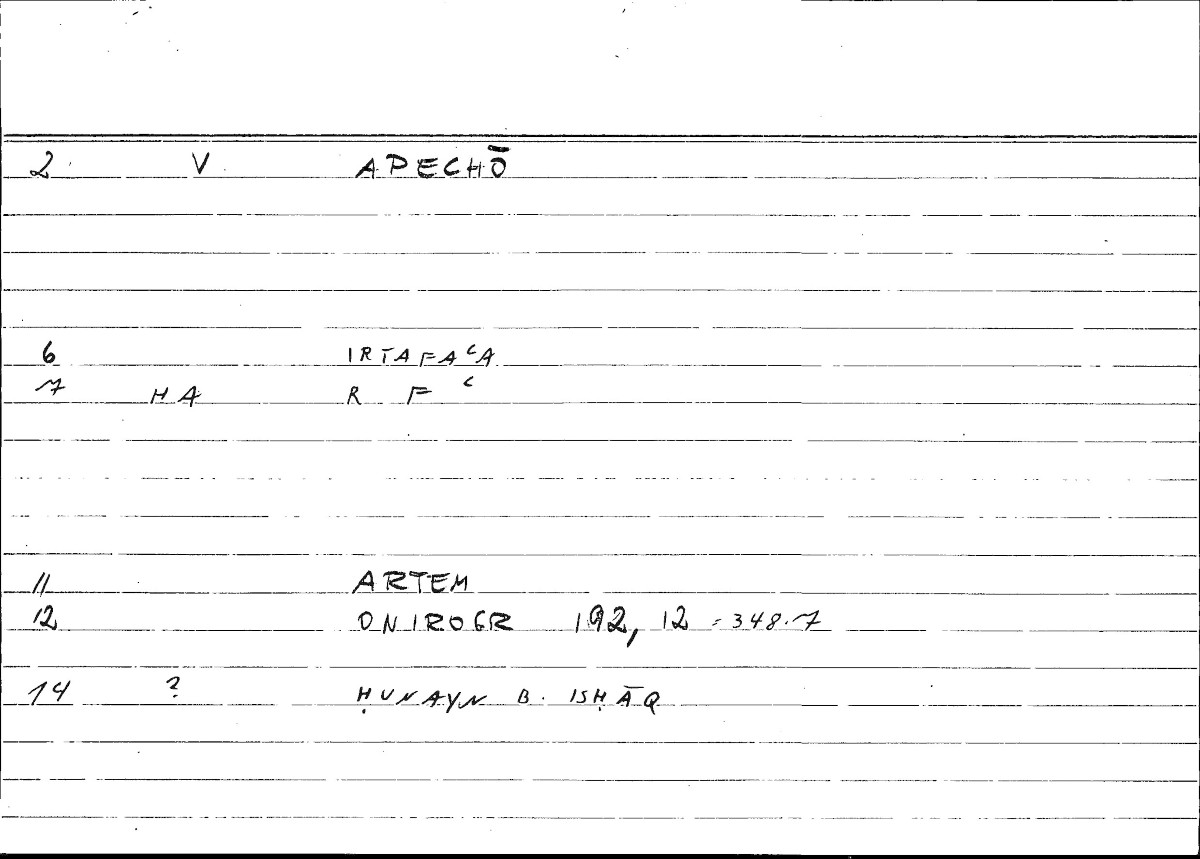 2 V APECHŌ
6 IRTAFAʿA
7 HA R F ʿ
11 ARTEM
12 ONIROGR 192, 12 = 348.7
14 ? ḤUNAYN B. ISḤĀQ